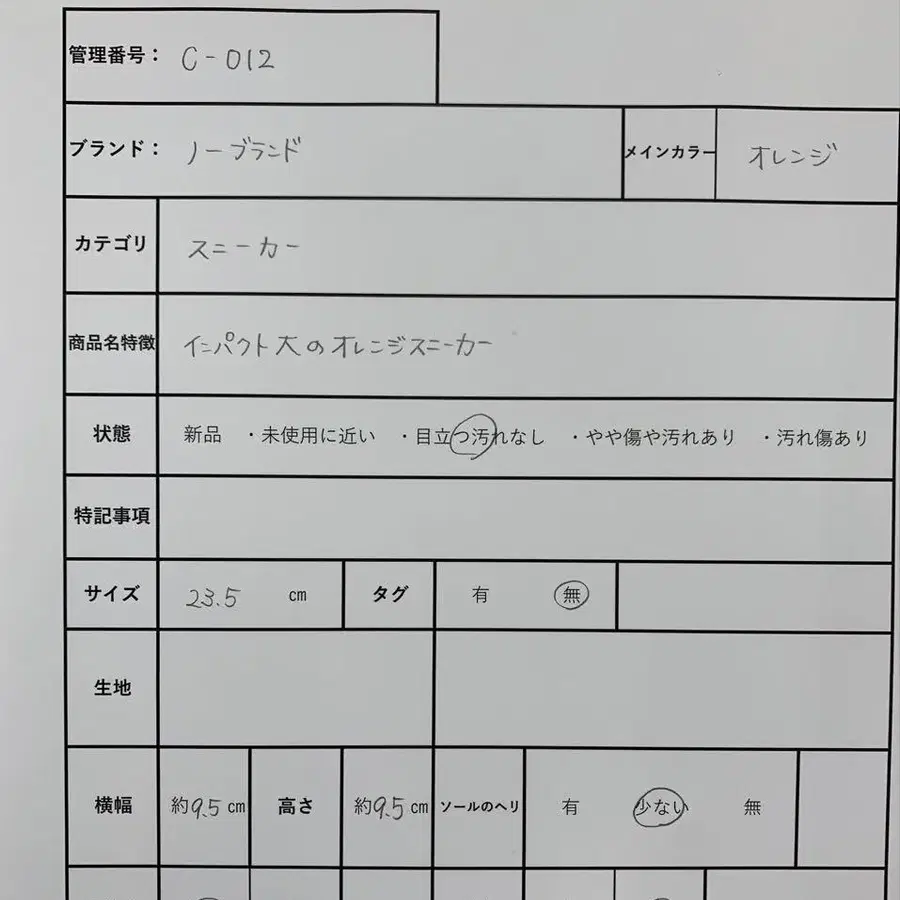 管理番号： C-012
ブランド： ノーブランド メインカラー オレンジ
カテゴリ スニーカー
商品名特徴 インパクト大のオレンジスニーカー
状態 新品 ・未使用に近い ・目立つ汚れなし ・やや傷や汚れあり ・汚れ傷あり
特記事項
サイズ 23.5 cm タグ 有 無
生地
横幅 約9.5cm 高さ 約9.5cm ソールのヘリ 有 少ない 無